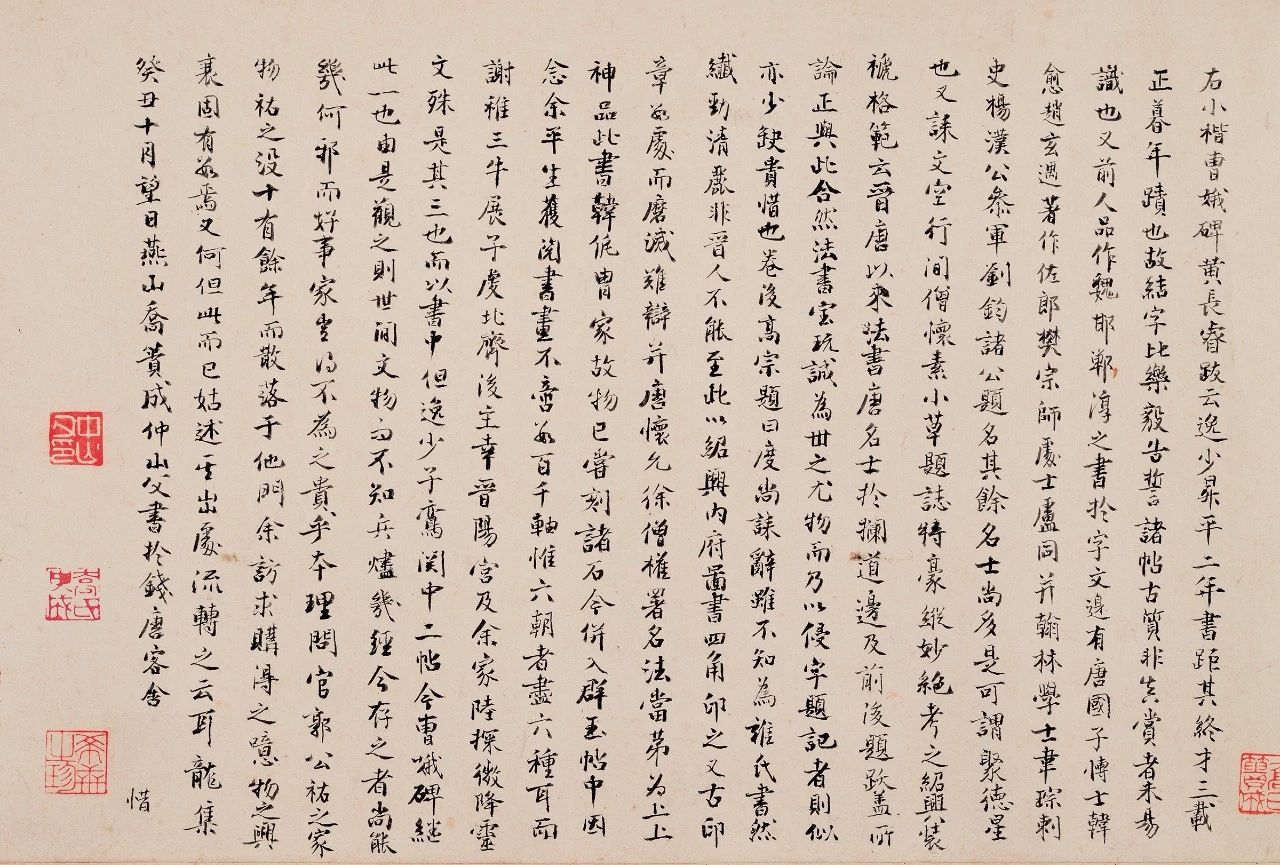 右小楷曹娥碑黄長睿跋云逸少昇平二年書距其終才三載
正暮年蹟也故結字比樂毅告誓諸帖古質非真賞者未易
識也又前人品作魏邯鄲淳之書於字文邊有唐國子博士韓
愈趙玄遇著作佐郎樊宗師處士盧同并翰林學士韋琮刺
史楊漢公叅軍劉鈞諸公題名其餘名士尚多是可謂聚德星
也又誄文空行間僧懷素小草題誌特豪縱妙絶考之紹興裝
褫格範云晉唐以來法書唐名士於攔道邊及前後題跋盖所
論正與此合然法書宝玩誠為世之尤物而乃以侵字題記者則似
亦少缺貴惜也卷後高宗題曰度尚誄辭雖不知為誰氏書然
纖勁清麗非晉人不能至此以紹興内府圖書四角印之又古印
章數處而磨滅難辯并唐懷充徐僧權署名法當第為上上
神品此書韓侂胄家故物已嘗刻諸石今併入群玉帖中因
念余平生獲閲書畫不啻數百千軸惟六朝者盡六種耳而
謝稚三牛展子虔北齊後主幸晉陽宮及余家陸探微降靈
文殊是其三也而以書中但逸少子鸞関中二帖今曹娥碑継
此一也由是觀之則世間文物曰不知兵燼幾經今存之者尚能
幾何邪而好事家豈得不為之貴乎本理問官郭公祐之家
物祐之没十有餘年而散落于他門余訪求購淂之噫物之興
衰固有數焉又何但此而已姑述其出處流轉之云耳龍集
癸丑十月望日燕山喬簣成仲山父書於錢唐客舍
惜